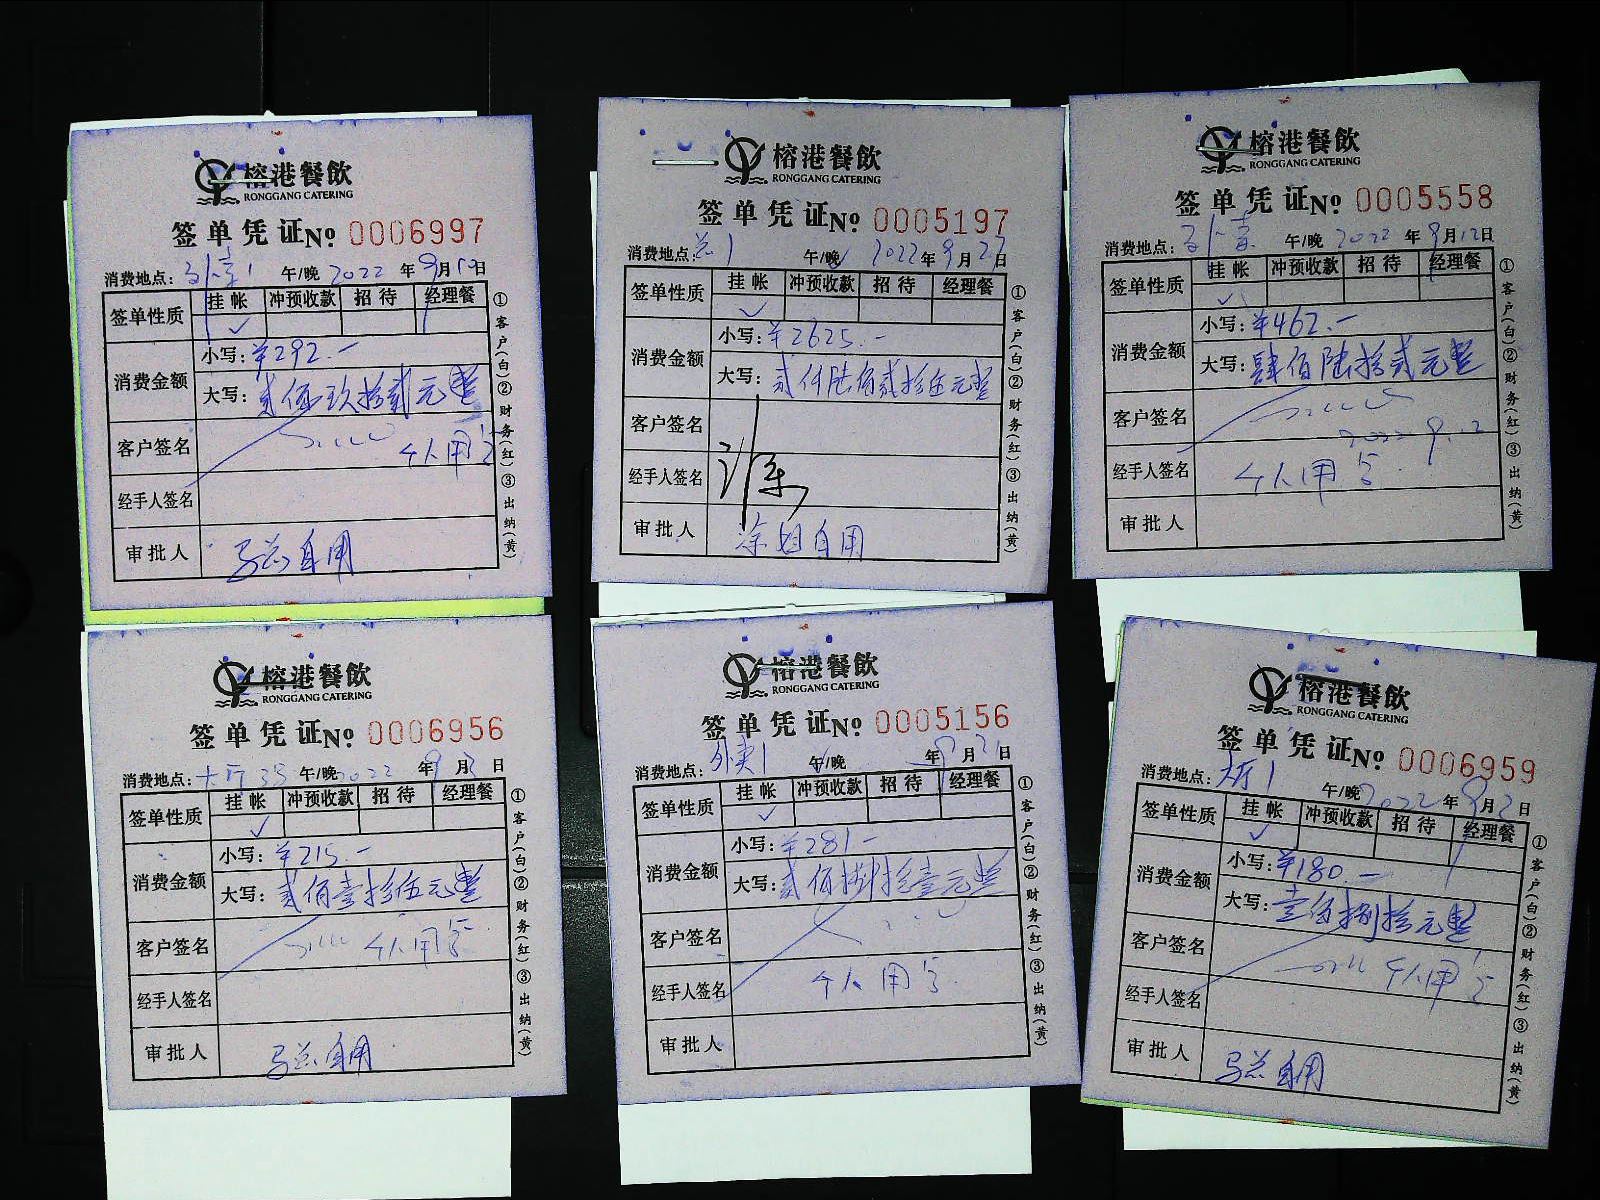 榕港餐飲
RONGGANG CATERING
签单凭证№ 0006997
消费地点: 午/晚 2022年9月10日
签单性质 挂帐 冲预收款 招待 经理餐
✓
消费金额 小写:¥292.-
大写:贰佰玖拾贰元整
客户签名 个人用
经手人签名
审批人 马总自用
①客户(白)②财务(红)③出纳(黄)
榕港餐飲
RONGGANG CATERING
签单凭证№ 0005197
消费地点: 午/晚 2022年9月27日
签单性质 挂帐 冲预收款 招待 经理餐
✓
消费金额 小写:¥2625.-
大写:贰仟陆佰贰拾伍元整
客户签名
经手人签名
审批人 涂姐自用
①客户(白)②财务(红)③出纳(黄)
榕港餐飲
RONGGANG CATERING
签单凭证№ 0005558
消费地点: 午/晚 2022年9月12日
签单性质 挂帐 冲预收款 招待 经理餐
✓
消费金额 小写:¥462.-
大写:肆佰陆拾贰元整
客户签名 2022.9.12
经手人签名 个人用
审批人
①客户(白)②财务(红)③出纳(黄)
榕港餐飲
RONGGANG CATERING
签单凭证№ 0006956
消费地点:大厅 午/晚 2022年9月2日
签单性质 挂帐 冲预收款 招待 经理餐
✓
消费金额 小写:¥215.-
大写:贰佰壹拾伍元整
客户签名 个人用
经手人签名
审批人 马总自用
①客户(白)②财务(红)③出纳(黄)
榕港餐飲
RONGGANG CATERING
签单凭证№ 0005156
消费地点:外卖1 午/晚 年9月21日
签单性质 挂帐 冲预收款 招待 经理餐
✓
消费金额 小写:¥281-
大写:贰佰捌拾壹元整
客户签名
经手人签名 个人用
审批人
①客户(白)②财务(红)③出纳(黄)
榕港餐飲
RONGGANG CATERING
签单凭证№ 0006959
消费地点:大厅1 午/晚 2022年9月2日
签单性质 挂帐 冲预收款 招待 经理餐
✓
消费金额 小写:¥180.-
大写:壹佰捌拾元整
客户签名 个人用
经手人签名
审批人 马总自用
①客户(白)②财务(红)③出纳(黄)